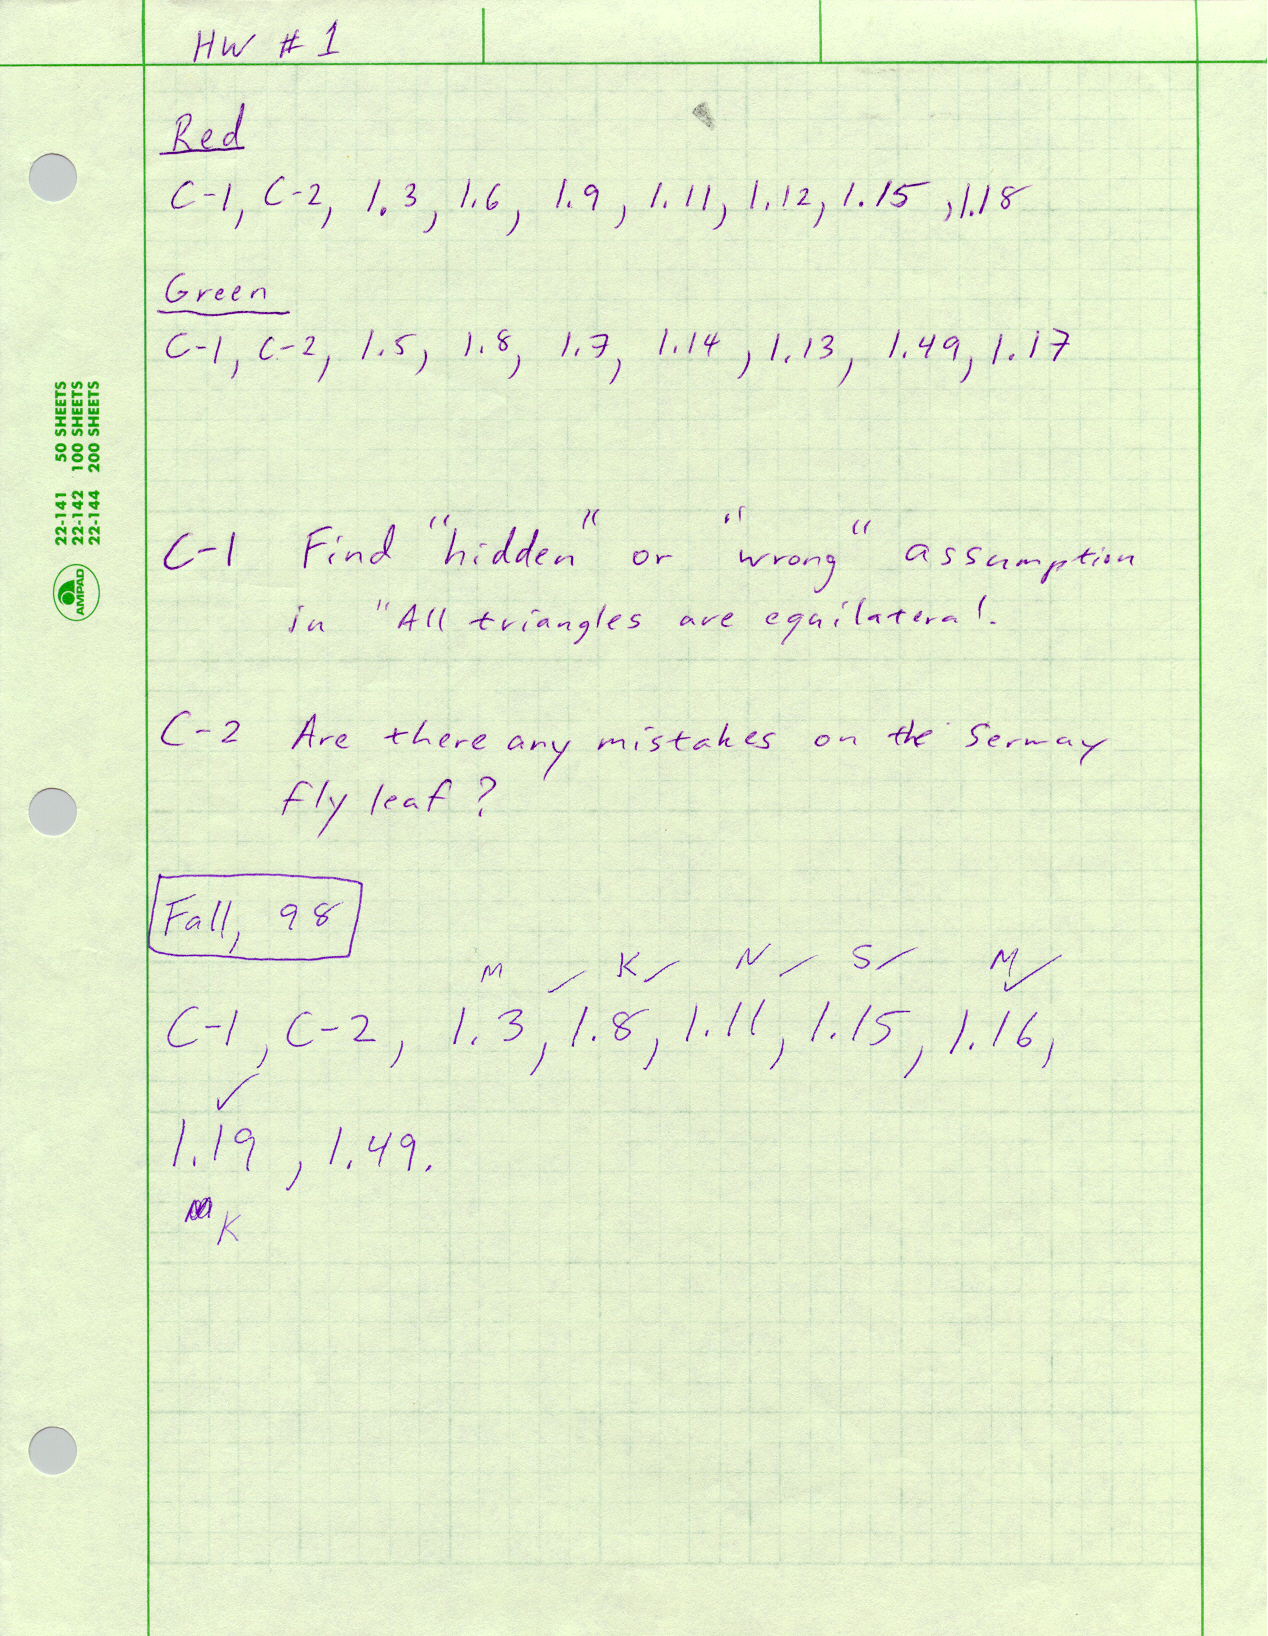 HW # 1
Red
C-1, C-2, 1.3, 1.6, 1.9, 1.11, 1.12, 1.15, 1.18
Green
C-1, C-2, 1.5, 1.8, 1.7, 1.14, 1.13, 1.49, 1.17
22-141 50 SHEETS
22-142 100 SHEETS
22-144 200 SHEETS
AMPAD
C-1 Find "hidden" or "wrong" assumption
in "All triangles are equilateral.
C-2 Are there any mistakes on the Serway
fly leaf?
Fall, 98
M K N S M
C-1, C-2, 1.3, 1.8, 1.11, 1.15, 1.16,
1.19, 1.49.
K